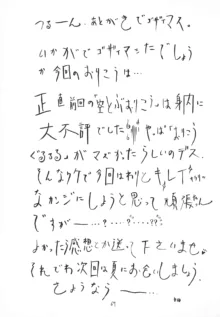 つるーん。あとがきでゴザイマス。
いかがでゴザイマシたでしょう
か今回のおりこうは…
正直前回の「空とぶおりこう」は身内に
大不評でした やっぱ「おりこう
ぐるぐる」がマズかったらしいのデス。
そんなワケで今回はわりとキレイ
なカンジにしようと思って頑張ったん
ですが――…?……?…???
よかったら感想とか送って下さいませ。
それでわ次回は夏にお会いしましょう。
さようなら――…